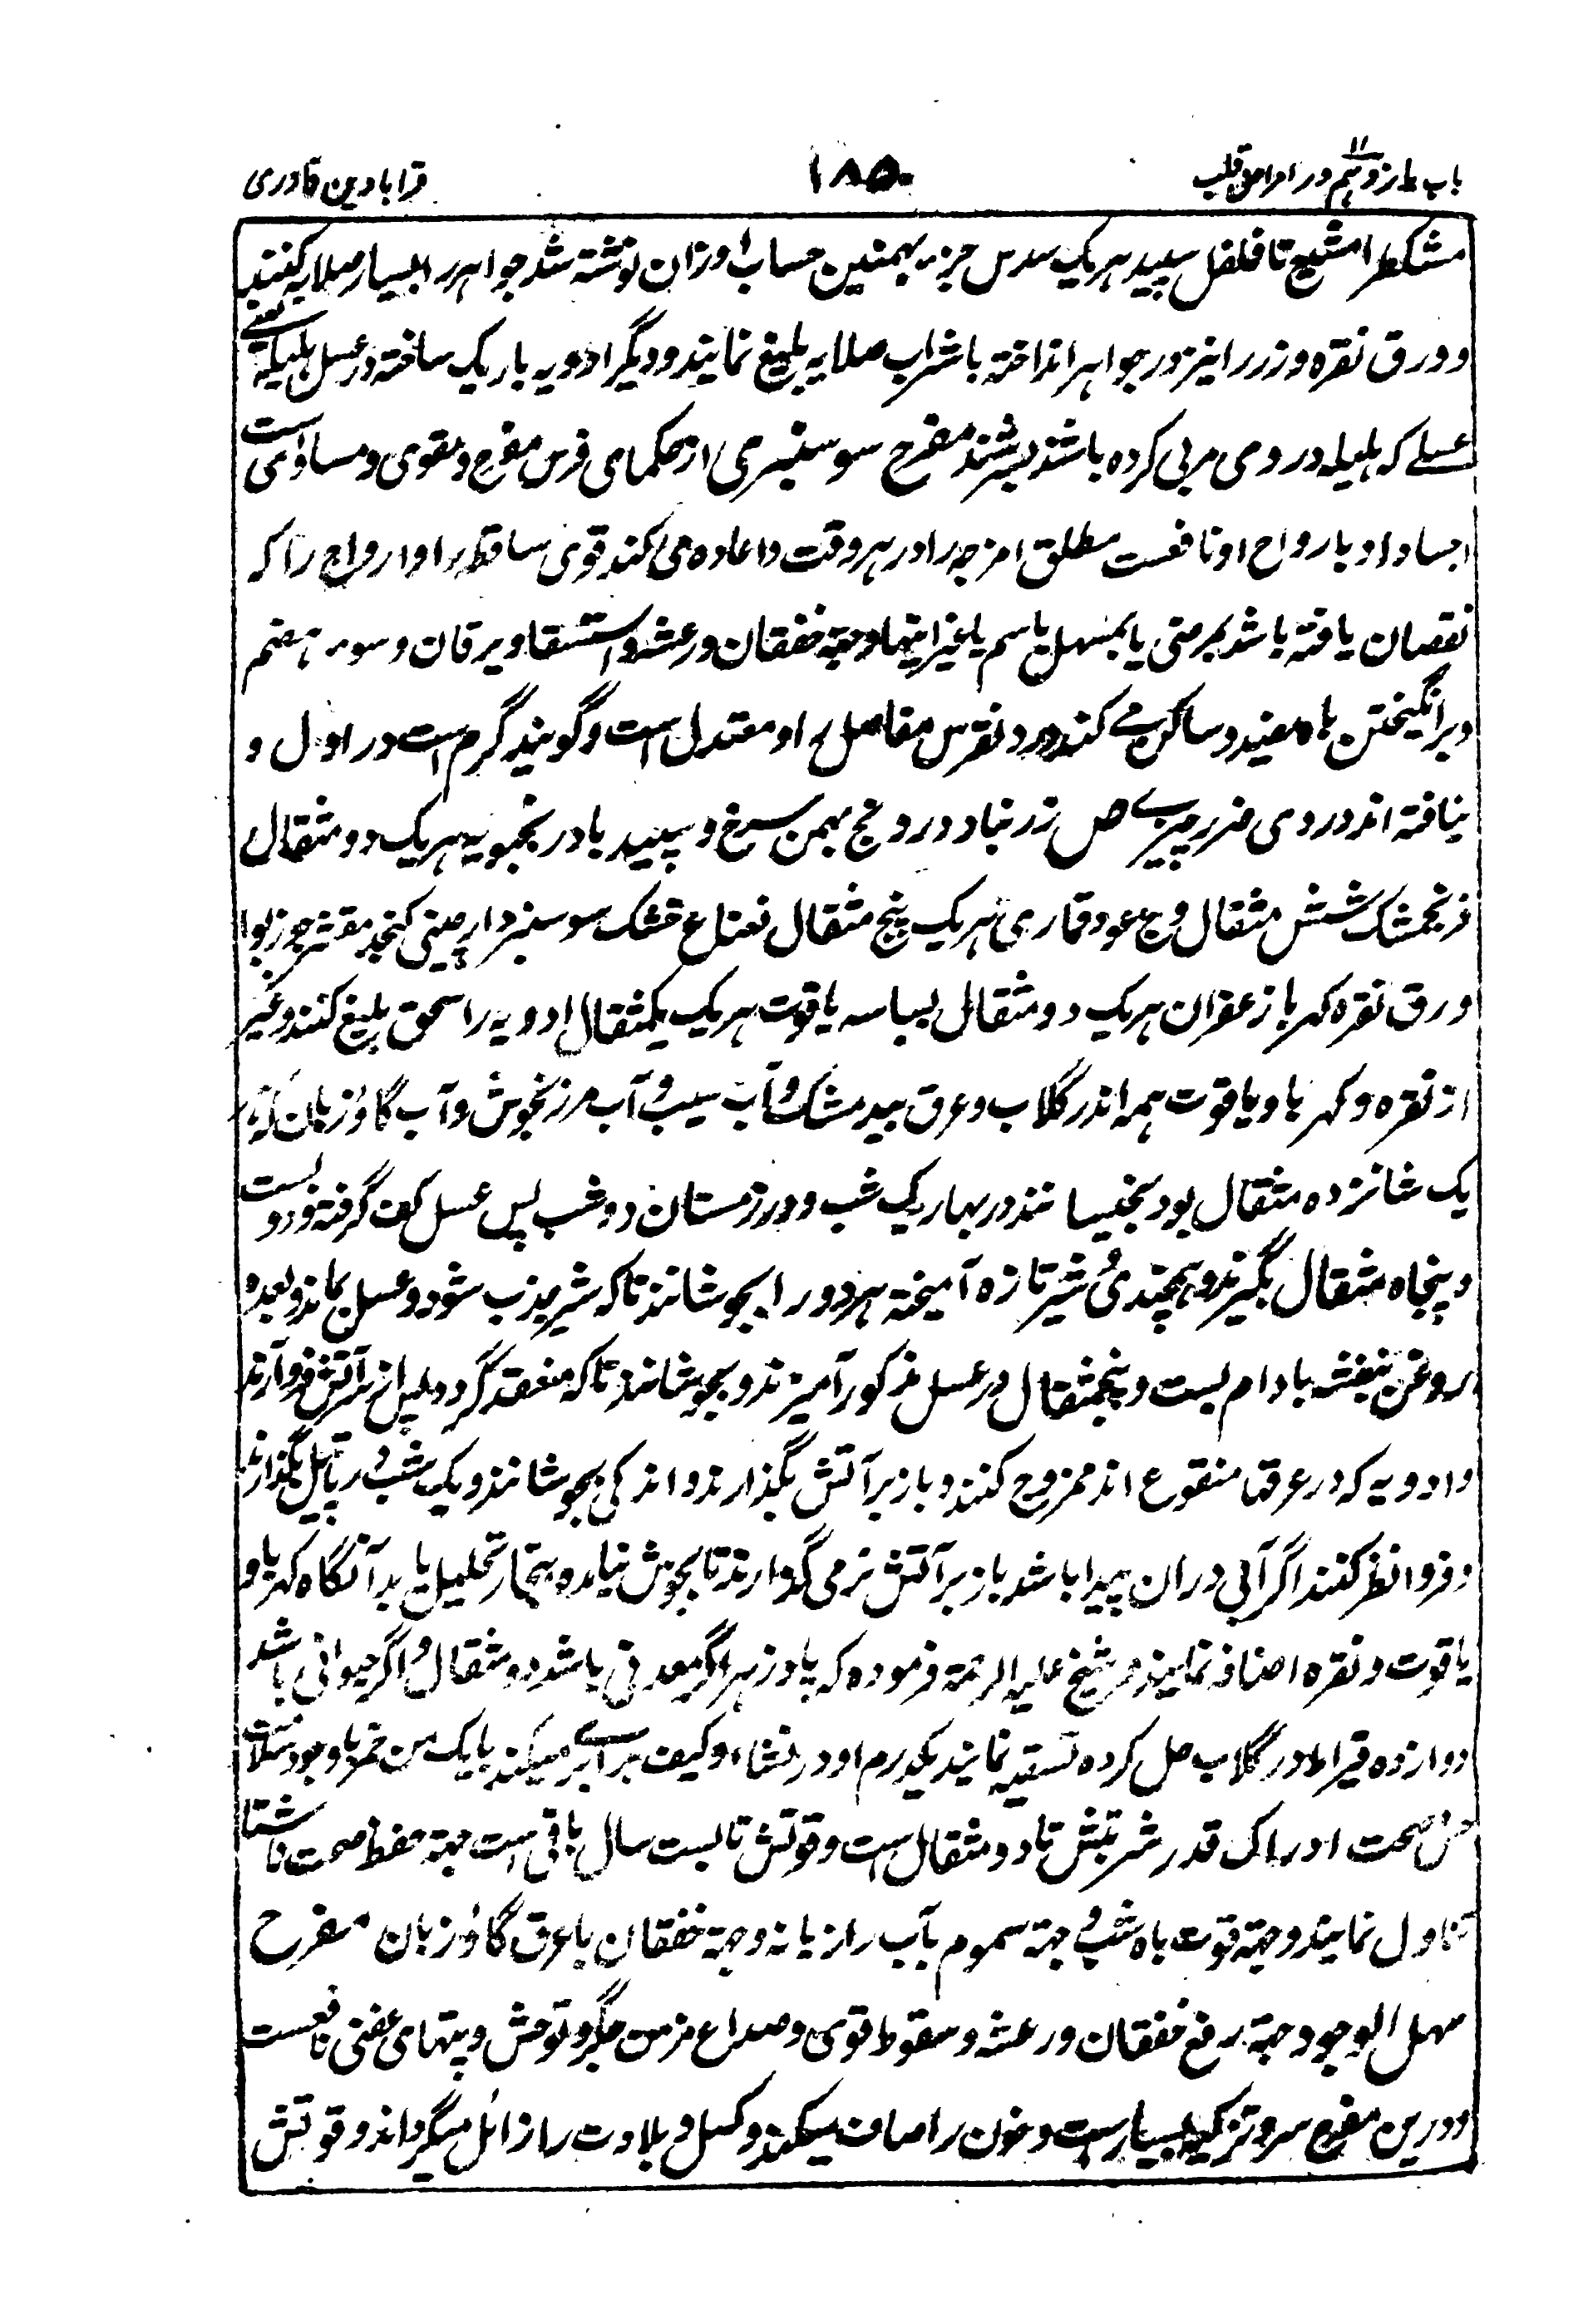 باب یازدهم در امراض قلب
۱۸۵
قرابادین قادری
مشکطرامشیع تا فلفل سپید هریک سدس جزء بهمنین حساب اوزان نوشته شد جواهر را بسیار صلایه کنند
و ورق نقره و زر را نیز در جواهر انداخته با شراب صلایه بلیغ نمایند و دیگر ادویه باریک ساخته در عسل هلیله یعنے
عسلے که هلیله در وی مربی کرده باشند بسرشند مفرح سوسنبری از حکمای فرس مفرح و مقوی و مساوی است
اجساد او بارواح او نافعست مطلق امزجه را در هر وقت و اعاده می کند قوی ساقطه را و ارواح را که
نقصان یافته باشد بمرضی یا بمسهل یا سم یا غیر اینها و جهة خفقان و رعشه و استسقا و یرقان و سوء هضم
و برانگیختن باه مفید و ساکن مے کند درد نقرس مفاصل را و معتدل است و گویند گرم است در اول و
نیافته اند در وی ضرر چیزے ص زرنباد درونج بهمن سرخ و سپید بادرنجبویه هریک دو مثقال
فرنجمشک شش مثقال وج عود قماری هریک پنج مثقال نعناع خشک سوسنبر دارچینی کنجد مقشر جوزبوا
ورق نقره کهربا زعفران هریک دو مثقال بسباسه یاقوت هریک یکمثقال ادویه را سحق بلیغ کنند و غیر
از نقره و کهربا و یاقوت همه اندر گلاب و عرق بیدمشک و آب سیب و آب مرزنجوش و آب گاوزبان که هر
یک شانزده مثقال بود بخیسانند در بهار یک شب و در زمستان دو شب پس عسل کف گرفته نود و بست
و پنجاه مثقال بگیرند و همچندی شیر تازه آمیخته هر دو را بجوشانند تا که شیر جذب شود و عسل بماند و بعده
روغن بنفشه بادام بست و پنجمثقال در عسل مذکور آمیزند و بجوشانند تا که منعقد گردد پس از سر آتش فرو آرند
و ادویه که در عرقها منقوع اند ممزوج کنند و باز بر آتش بگذارند و اندکی بجوشانند و یک شب در پاتیل بگذارند
و فردا نظر کنند اگر آبی دران پیدا باشد باز بر آتش نرمی گذارند تا بجوش نیامده ببخار تحلیل یابد آنگاه کهربا و
یاقوت و نقره اضافه نمایند و شیخ علیه الرحمة فرموده که پادزهر اگر معدنی باشد دو مثقال و اگر حیوانی باشد
دوازده قیراط در گلاب حل کرده تسقیه نمایند یکدرم او در نشاء و کیف برابرے میکند با یک من خمر با وجود سلامت
حس و صحت ادراک قدر شربتش تا دو مثقال است و قوتش تا بست سال باقی است جهة حفظ صحت ناشتا
تناول نمایند و جهة قوت باه شب و جهة سموم بآب رازیانه و جهة خفقان با عرق گاوزبان مفرح
سهل الوجود جهة رفع خفقان و رعشه و سقوط قوی و صداع مزمن جگر و توحش و تپهای عفنی نافعست
و درین مفرح سر و تزکیه بسیارست و خون را صاف میکند و کسل و بلادت را زائل میگرداند و قوتش